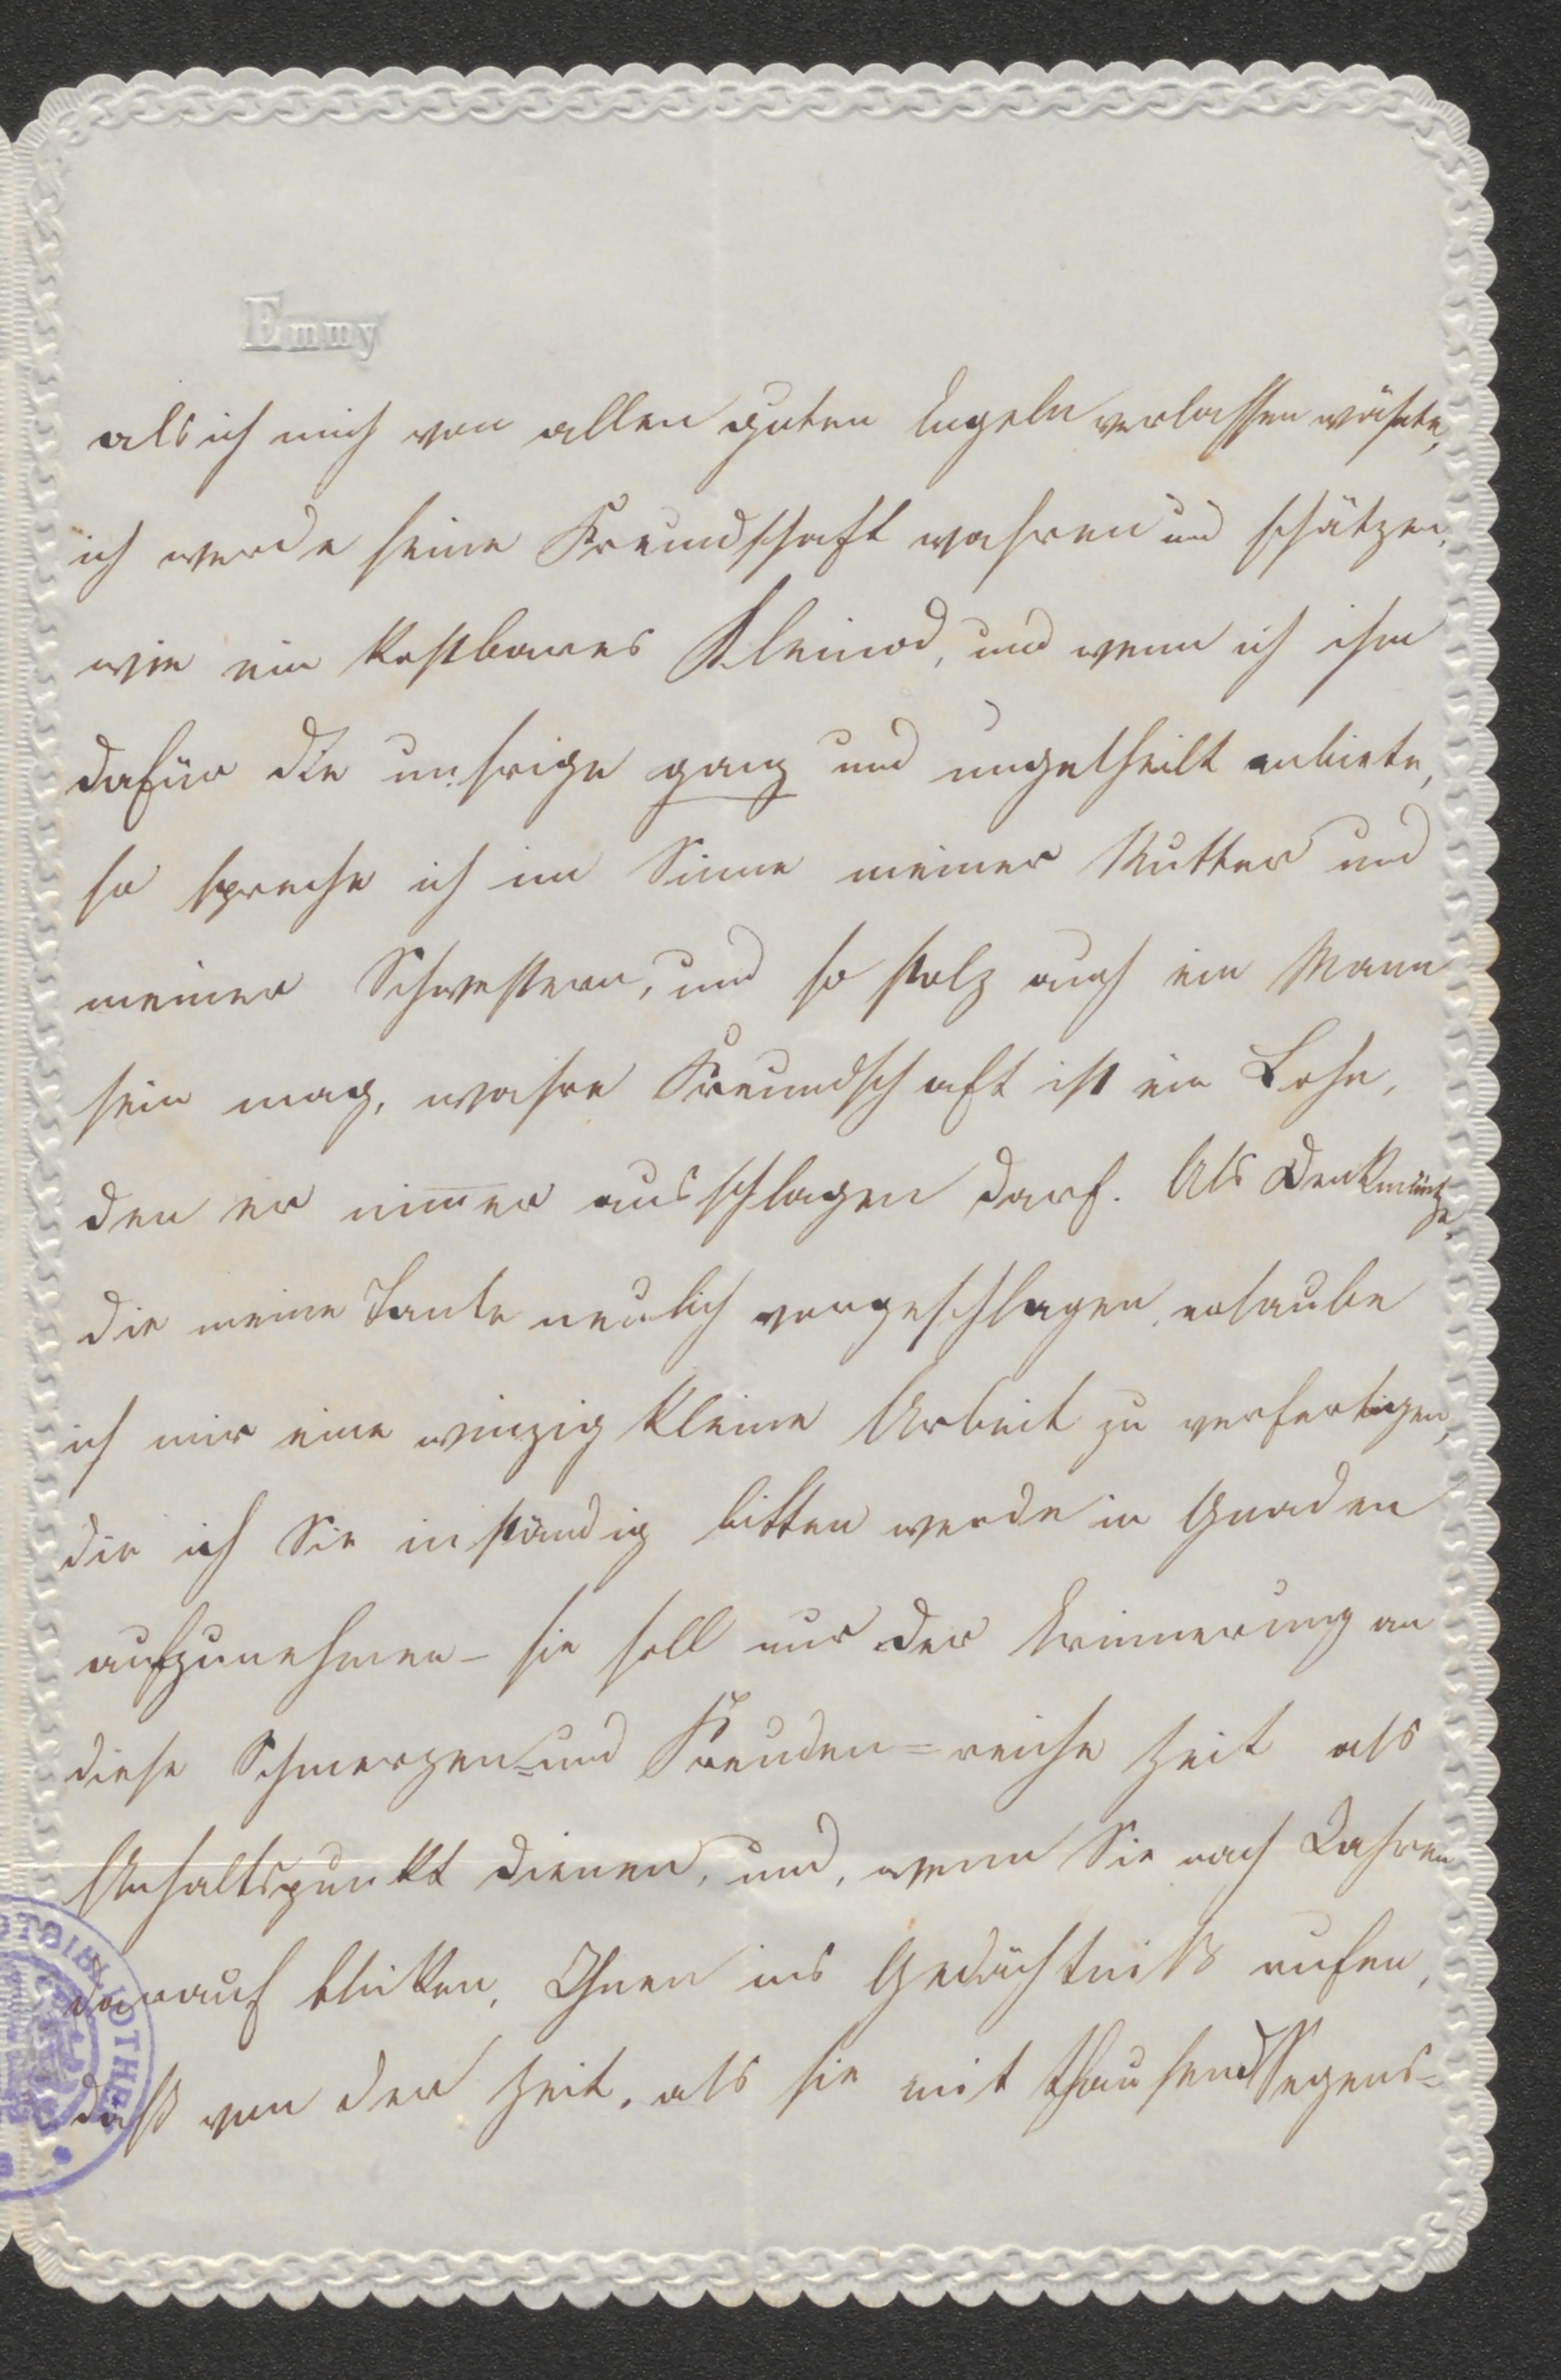 Emmy
als ich mich von allen guten Engeln verlassen wähnte,
ich werde seine Freundschaft wahren und schätzen,
wie ein kostbares Kleinod, und wenn ich ihm
dafür die unsrige ganz und ungetheilt anbiete,
so spreche ich im Sinne meiner Mutter und
meiner Schwestern, und so stolz auch ein Mann
sein mag, wahre Freundschaft ist ein Lohn,
den er nim̅er ausschlagen darf. Als Denkmünze,
die meine Tante neulich vorgeschlagen, erlaube
ich mir eine winzig kleine Arbeit zu verfertigen,
die ich Sie inständig bitten werde in Gnaden
aufzunehmen – sie soll nur der Erinnerung an
diese Schmerzen= und Freuden=reiche Zeit als
Anhaltspunkt dienen, und, wenn Sie nach Jahren
darauf blicken, Ihnen ins Gedächtniß rufen,
daß von der Zeit, als sie mit thausend Segens=